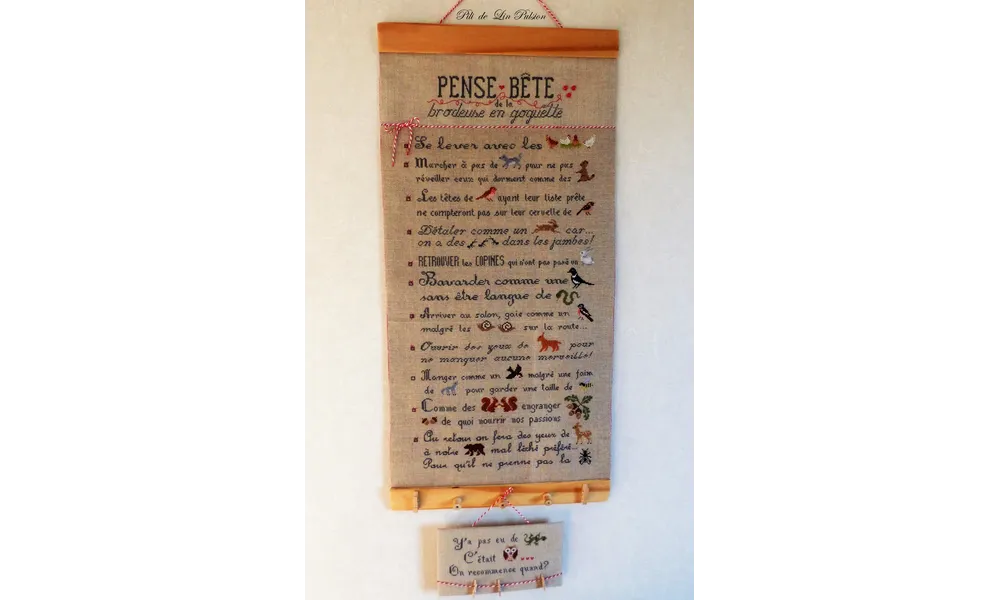 Pili de Lin Pulsion
PENSE BÊTE
de la
brodeuse en goguette
Se lever avec les
Marcher à pas de pour ne pas
réveiller ceux qui dorment comme des
Les têtes de ayant leur liste prête
ne compteront pas sur leur cervelle de
Détaler comme un car...
on a des dans les jambes!
RETROUVER les COPINES qui n'ont pas posé un
Bavarder comme une
sans être langue de
Arriver au salon, gaie comme un
malgré les sur la route...
Ouvrir des yeux de pour
ne manquer aucune merveille!
Manger comme un malgré une faim
de pour garder une taille de
Comme des engranger
de quoi nourrir nos passions
Au retour on fera des yeux de
à notre mal léché préféré...
Pour qu'il ne prenne pas la
Y'a pas eu de
C'était
On recommence quand?